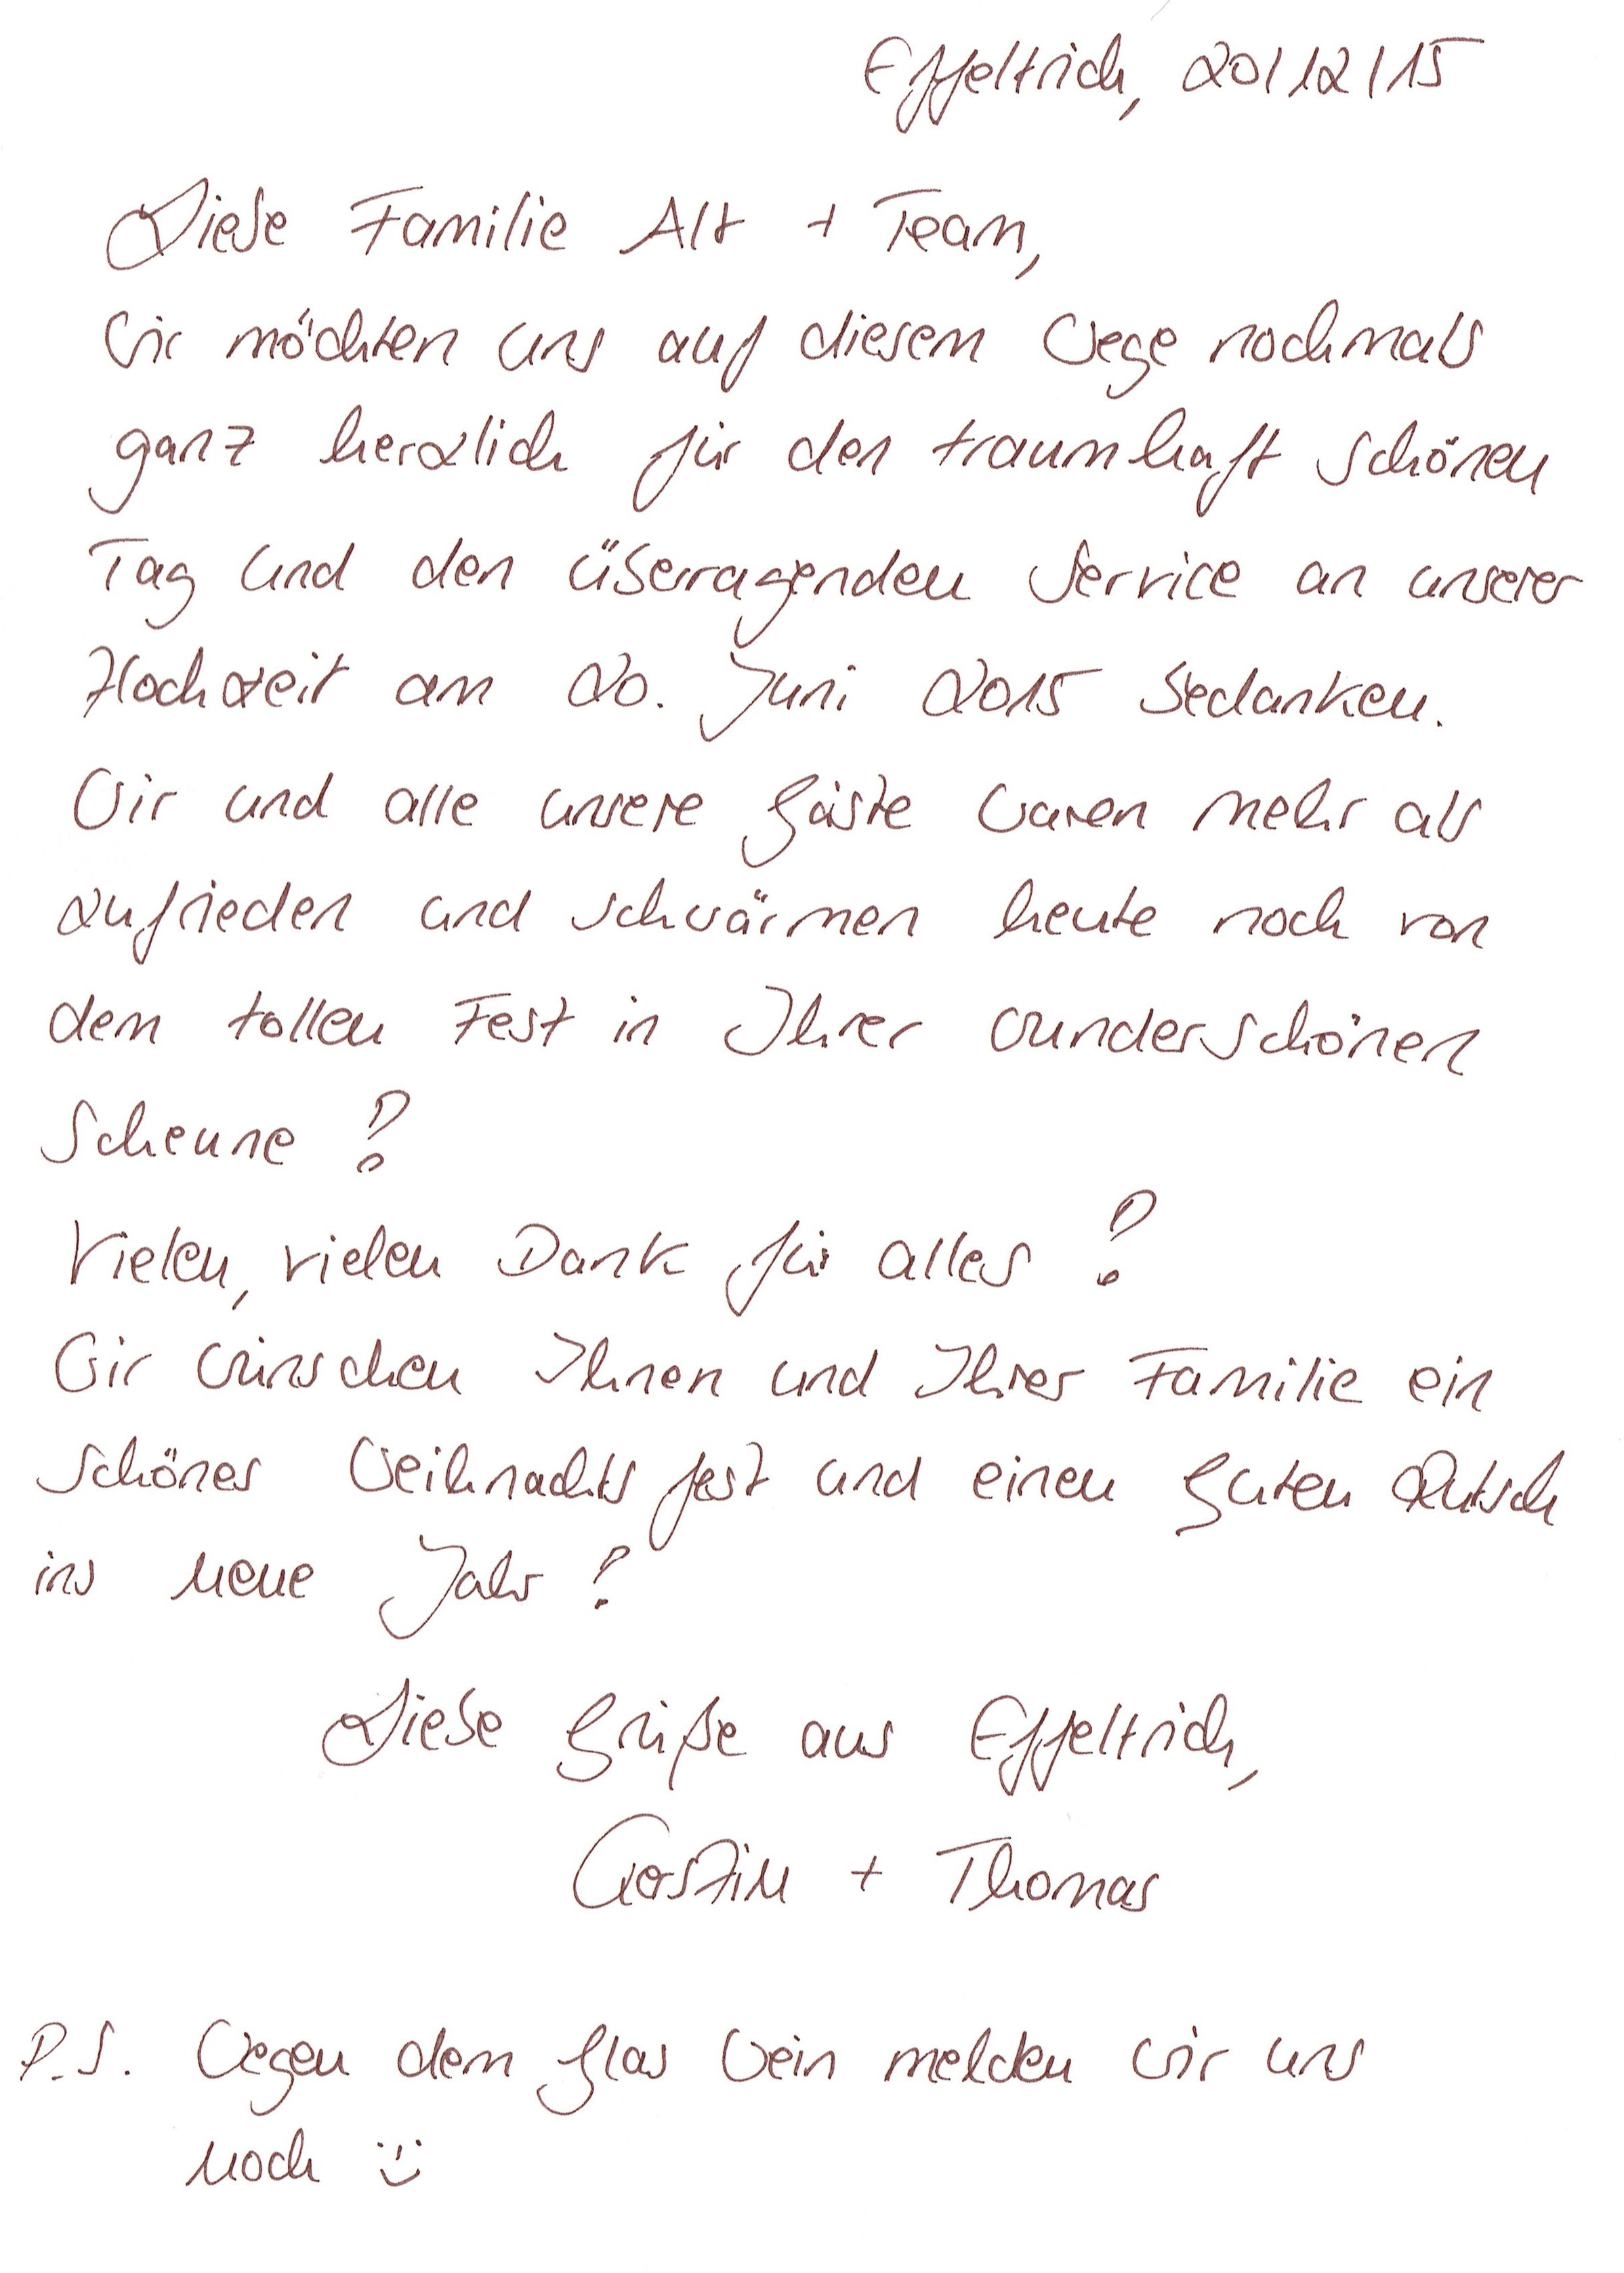 Effeltrich, 20/12/15
Liebe Familie Alt + Team,
wir möchten uns auf diesem Wege nochmals
ganz herzlich für den traumhaft schönen
Tag und den überragenden Service an unserer
Hochzeit am 20. Juni 2015 bedanken.
Wir und alle unsere Gäste waren mehr als
zufrieden und schwärmen heute noch von
dem tollen Fest in Ihrer wunderschönen
Scheune!
Vielen, vielen Dank für alles!
Wir wünschen Ihnen und Ihrer Familie ein
schönes Weihnachtsfest und einen guten Rutsch
ins neue Jahr!
Liebe Grüße aus Effeltrich,
+ Thomas
P.S. Wegen dem Glas Wein melden wir uns
noch :)